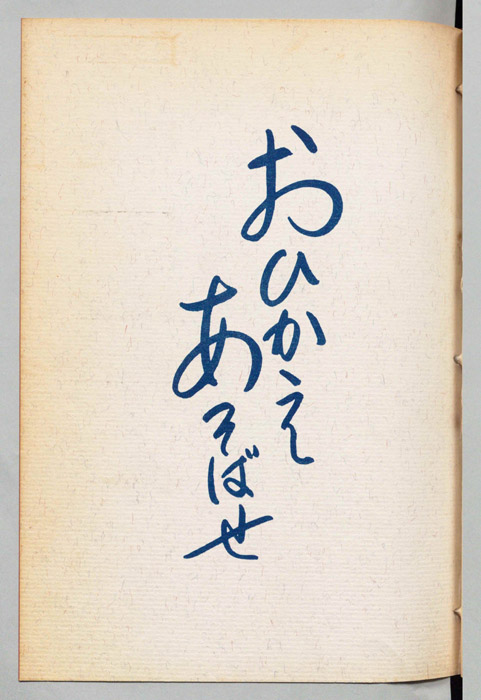 おひかえ
あそばせ